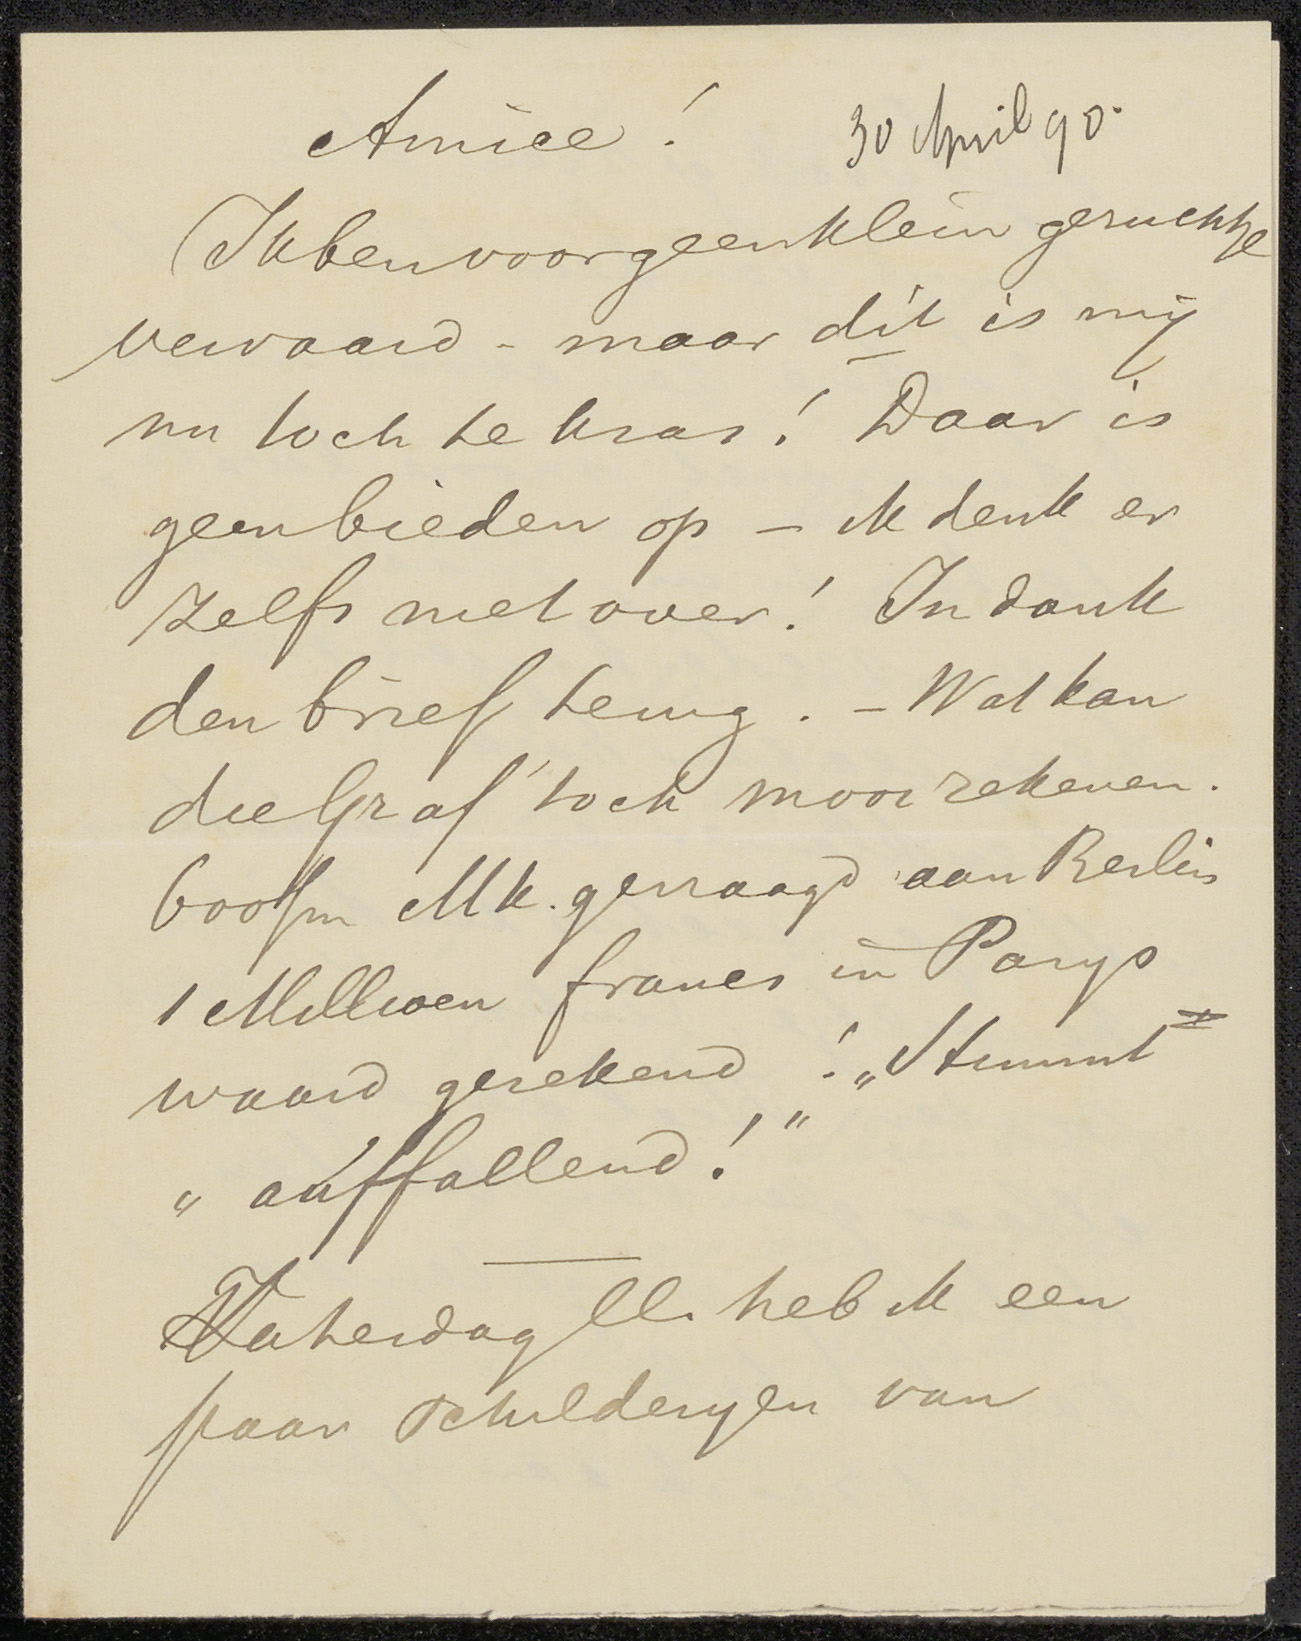 Amice! 30 April 90.
Ik ben voor geen klein geruchtje
vervaard - maar dit is mij
nu toch te kras! Daar is
geen bieden op - ik denk er
zelfs niet over! In dank
den brief terug. - Wat kan
die Graf toch mooi rekenen.
600/m Mk. gevraagd aan Berlin
1 Millioen francs in Parijs
waard gerekend! „Stimmt
„auffallend!"
Zaterdag ll. heb ik een
paar schilderijen van